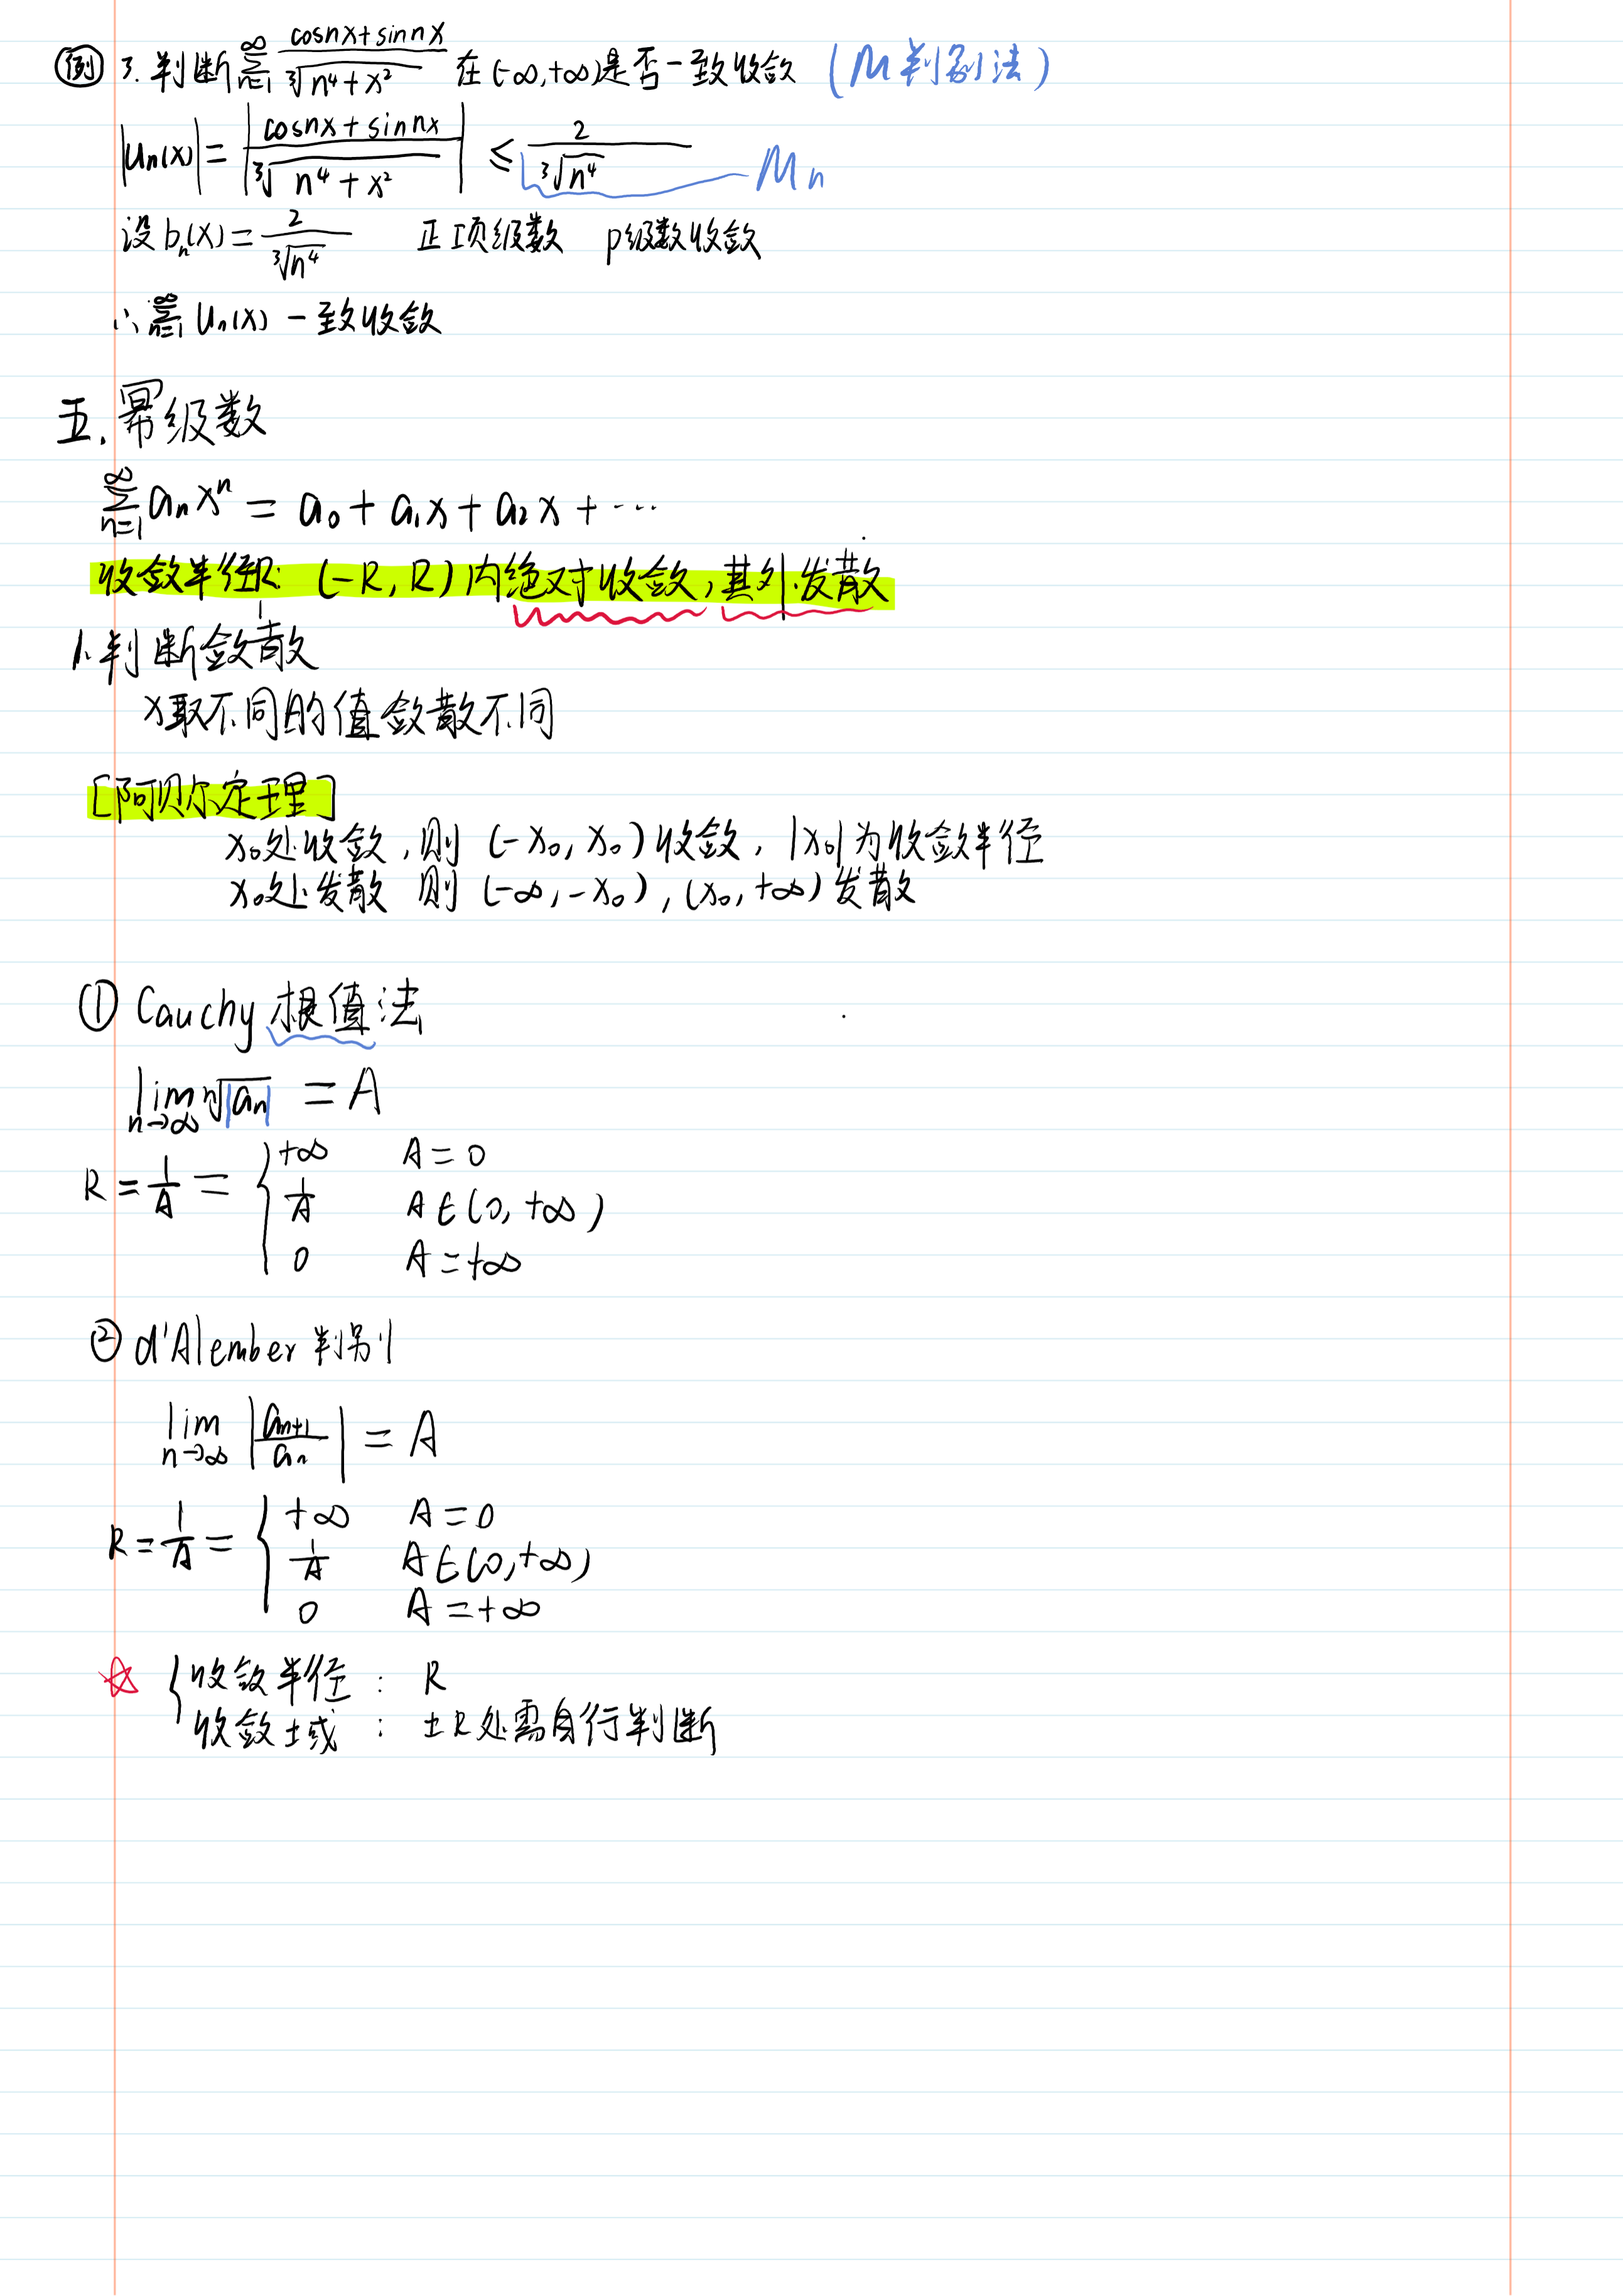 例 3. 判断 ∑_{n=1}^{∞} (cosnx+sinnx)/∛(n⁴+x²) 在(-∞,+∞)是否一致收敛 (M判别法)
|uₙ(x)| = |(cosnx+sinnx)/∛(n⁴+x²)| ≤ 2/∛(n⁴) Mₙ
设 bₙ(x) = 2/∛(n⁴) 正项级数 p级数收敛
∴ ∑_{n=1}^{∞} uₙ(x) 一致收敛
五. 幂级数
∑_{n=1}^{∞} aₙxⁿ = a₀ + a₁x + a₂x + ⋯
收敛半径R: (-R, R) 内绝对收敛, 其外发散
1. 判断敛散
x取不同的值敛散不同
[阿贝尔定理]
x₀处收敛, 则 (-x₀, x₀) 收敛, |x₀| 为收敛半径
x₀处发散 则 (-∞, -x₀), (x₀, +∞) 发散
① Cauchy 根值法
lim_{n→∞} ⁿ√|aₙ| = A
R = 1/A = { +∞ A = 0
1/A A∈(0, +∞)
0 A = +∞
② d'Alember 判别
lim_{n→∞} |aₙ₊₁/aₙ| = A
R = 1/A = { +∞ A = 0
1/A A∈(0, +∞)
0 A = +∞
☆ { 收敛半径 : R
收敛域 : ±R处需自行判断